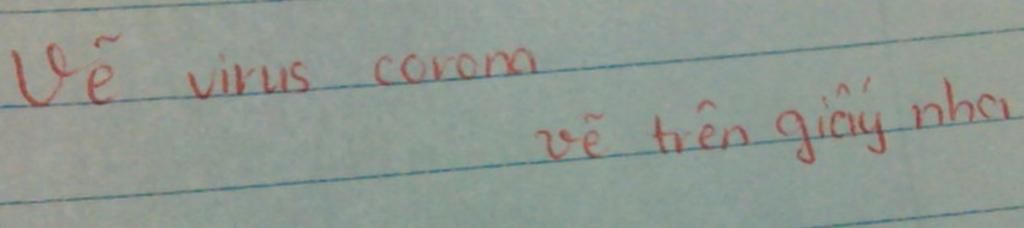 Vẽ virus corona
vẽ trên giấy nha